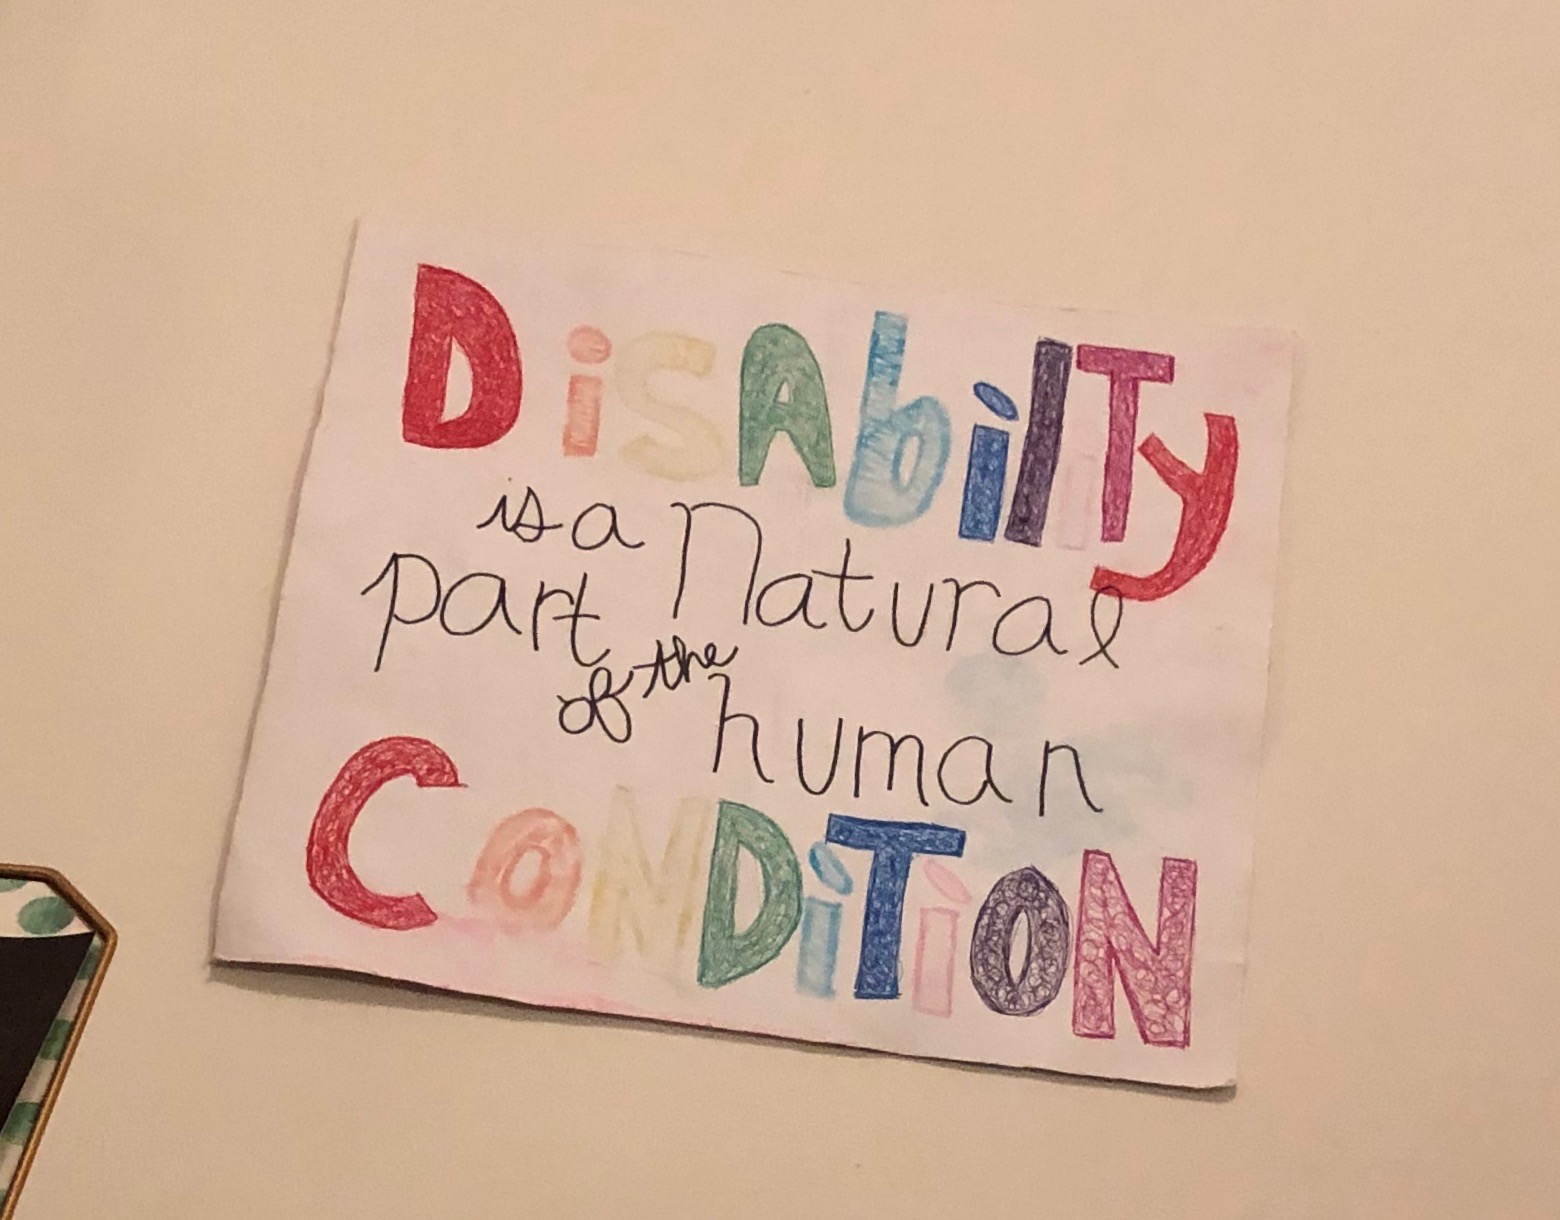 DiSAbiliTy
is a natural
part
of the human
CONDiTiON